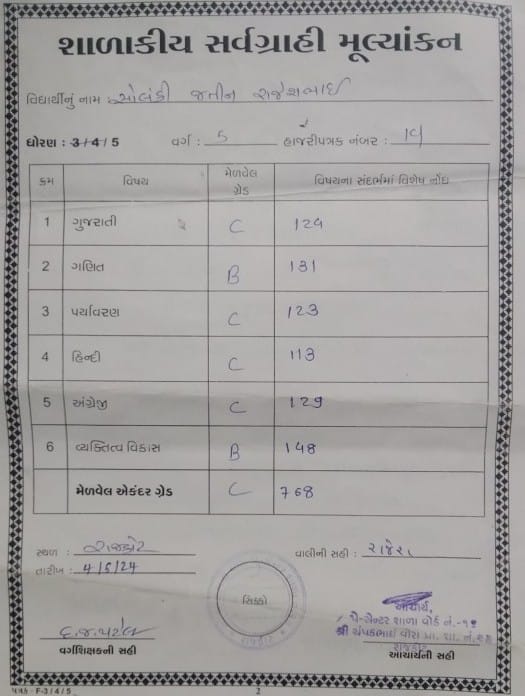 શાળાકીય સર્વગ્રાહી મૂલ્યાંકન
વિદ્યાર્થીનું નામ સોલંકી જતીન રાજેશભાઈ
ધોરણ : 3/4/5 વર્ગ : 5 હાજરીપત્રક નંબર : 19
ક્રમ વિષય મેળવેલ ગ્રેડ વિષયના સંદર્ભમાં વિશેષ નોંધ
1 ગુજરાતી C 124
2 ગણિત B 131
3 પર્યાવરણ C 123
4 હિન્દી C 113
5 અંગ્રેજી C 129
6 વ્યક્તિત્વ વિકાસ B 148
મેળવેલ એકંદર ગ્રેડ C 768
સ્થળ : રાજકોટ વાલીની સહી : રાજેશ
તારીખ : 4/5/24
સિક્કો
આચાર્ય,
પે-સેન્ટર શાળા બોર્ડ નં.-
શ્રી ચંપકભાઈ વોરા પ્રા. શા. નં.
રાજકોટ
વર્ગશિક્ષકની સહી આચાર્યની સહી
પત્રક - F-3/4/5 2